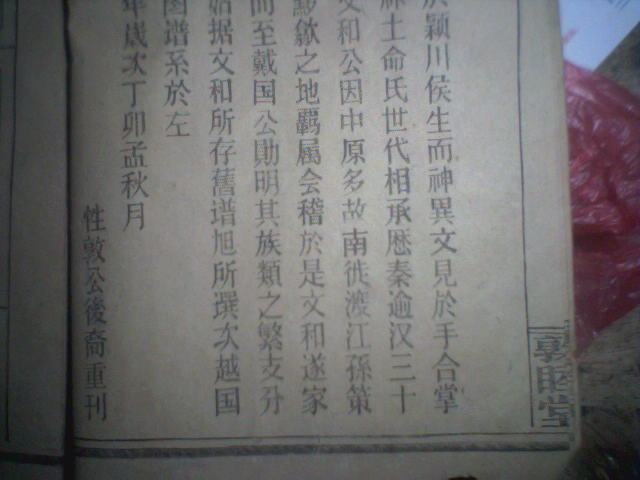 敦睦堂
於颖川侯生而神異文見於手合掌
士命氏世代相承厯秦逾汉三十
文和公因中原多故南徙渡江孫策
黟歙之地羁属会稽於是文和遂家
而至戴国公勛明其族類之繁支分
始据文和所存舊谱旭所撰次越国
图谱系於左
年歲次丁卯孟秋月
性敦公後裔重刊